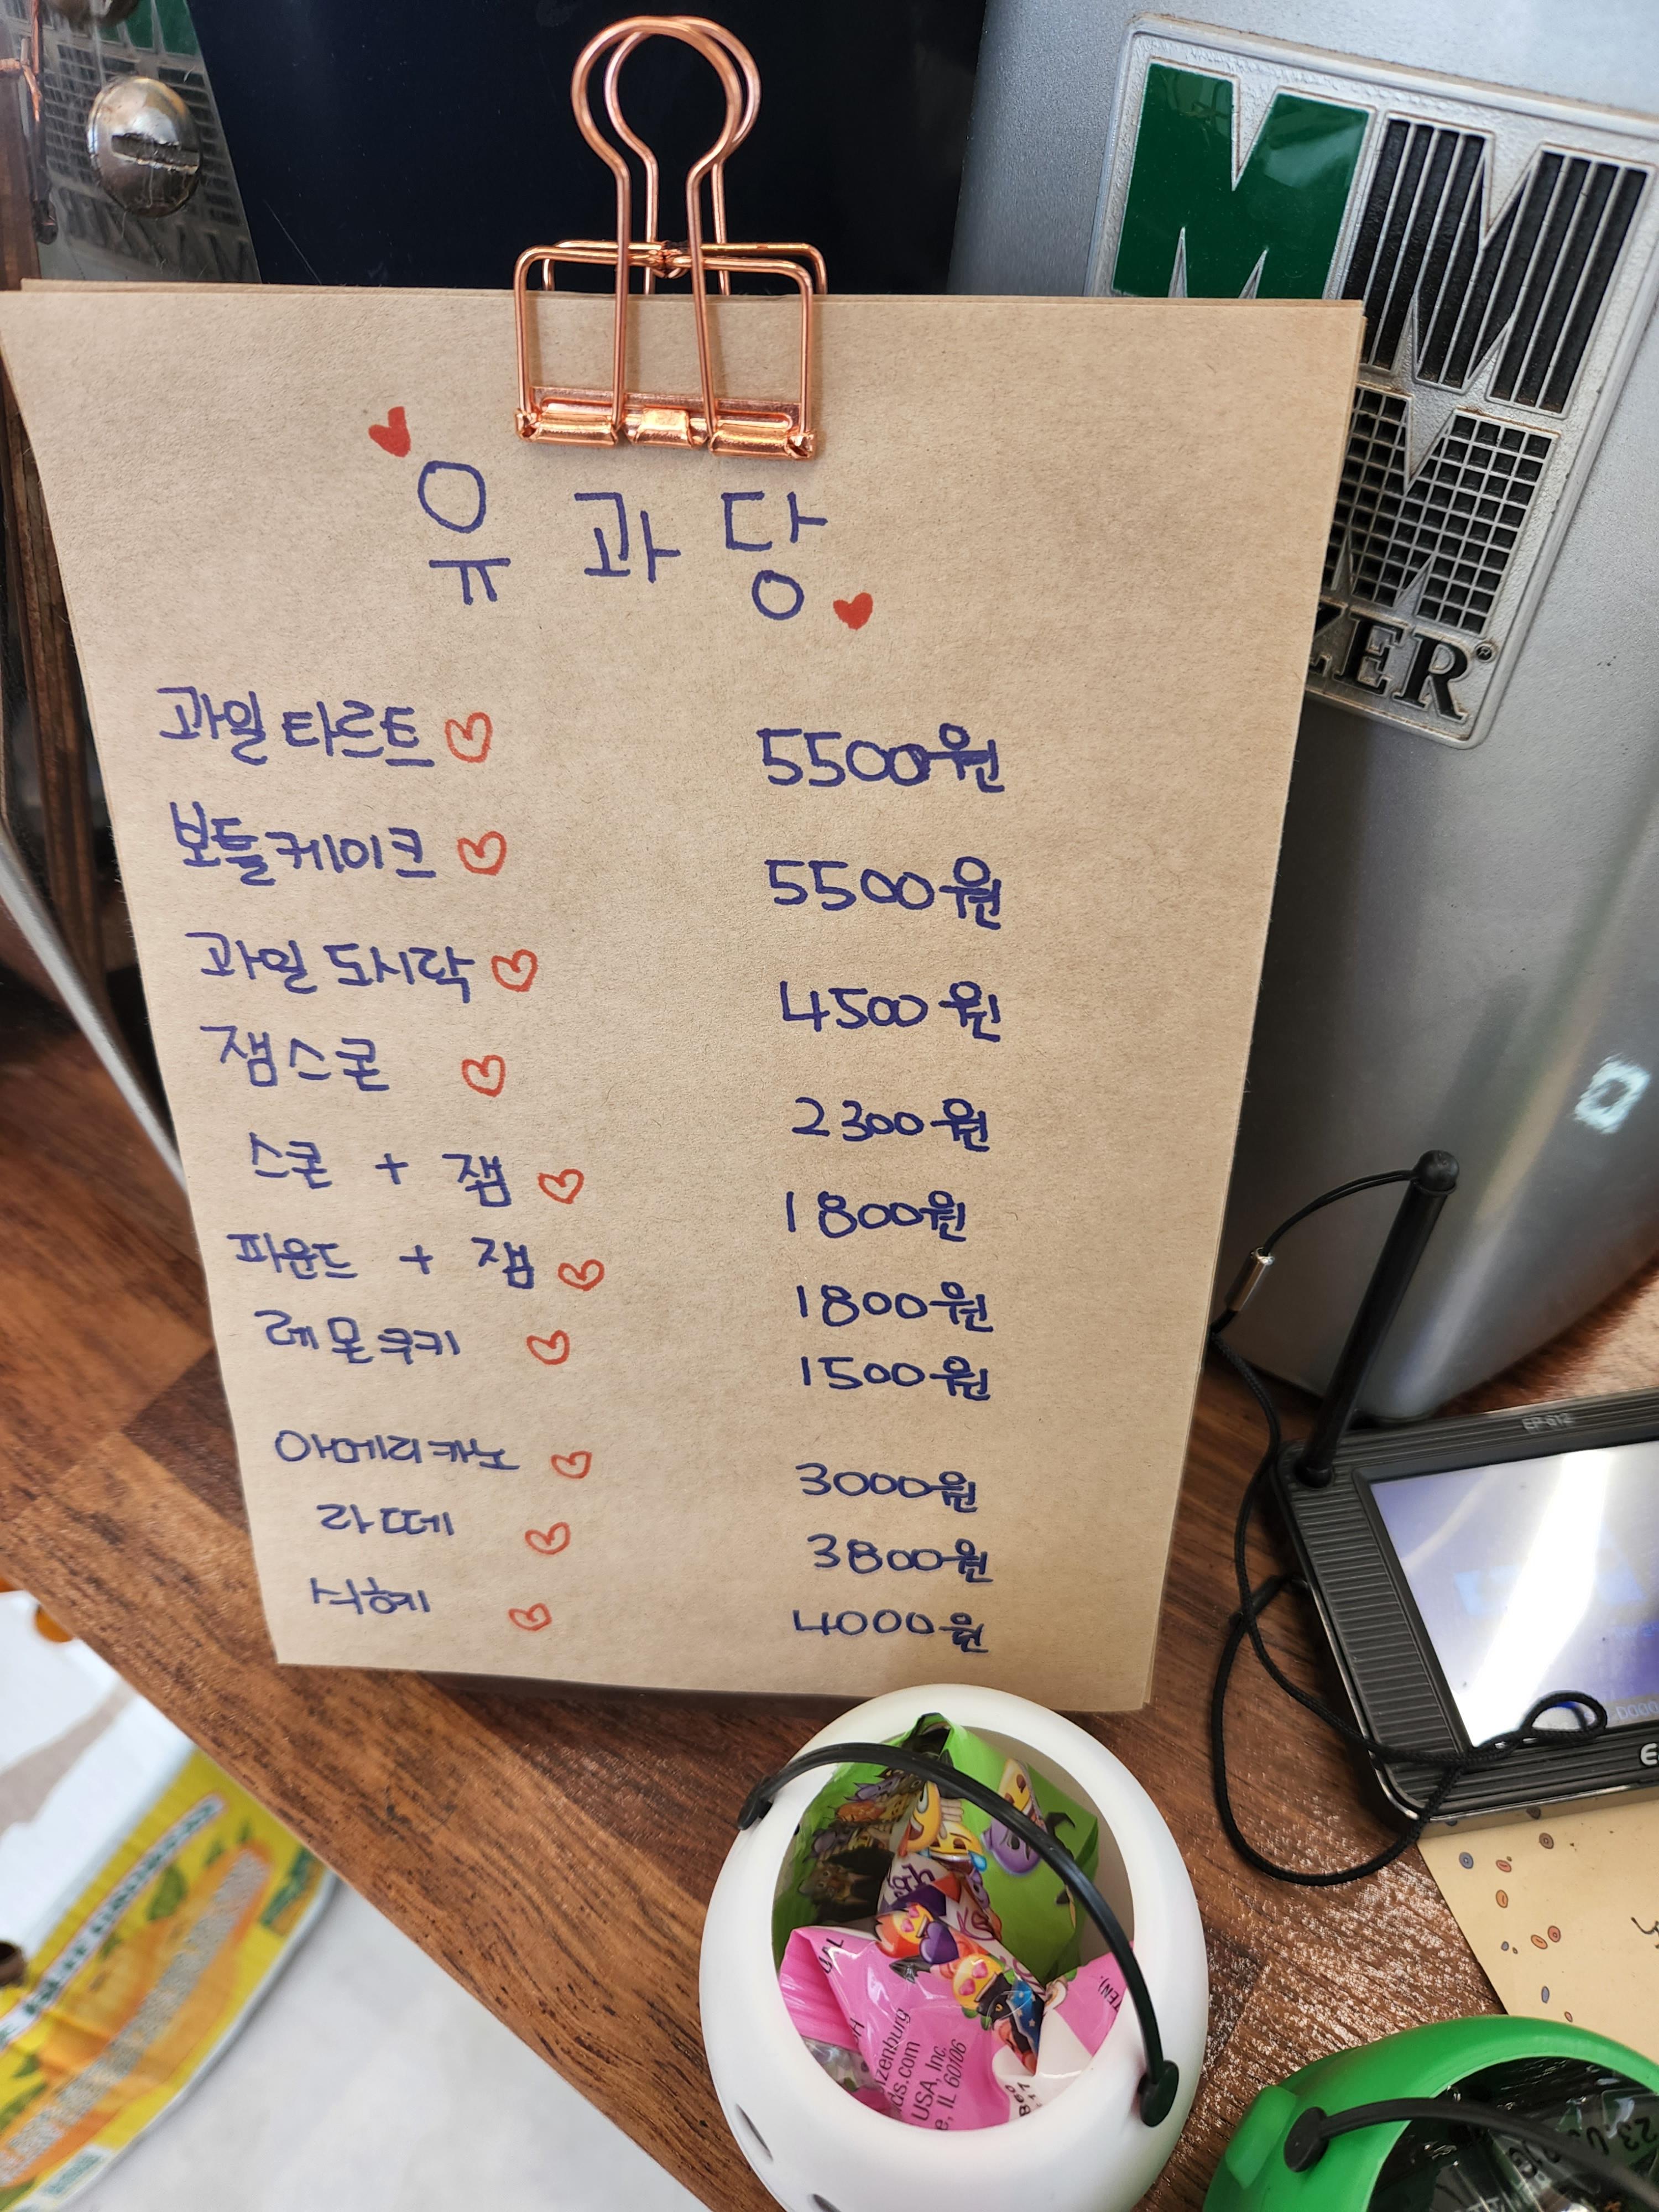 유과당
과일타르트 5500원
보틀케이크 5500원
과일도시락 4500원
잼스콘 2300원
스콘 + 잼 1800원
파운드 + 잼 1800원
레몬쿠키 1500원
아메리카노 3000원
라떼 3800원
식혜 4000원
ZER®
USA, Inc.
IL 60106